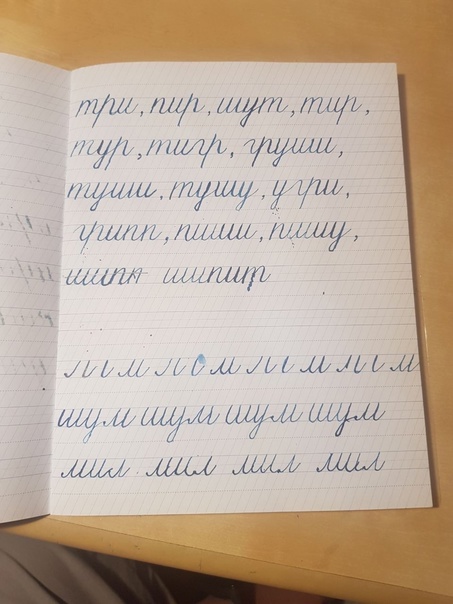 три, пир, шут, тир,
тур, тигр, груши,
туши, тушу, угри,
грипп, пиши, пишу,
шипит
шум шум шум шум
мил мил мил мил